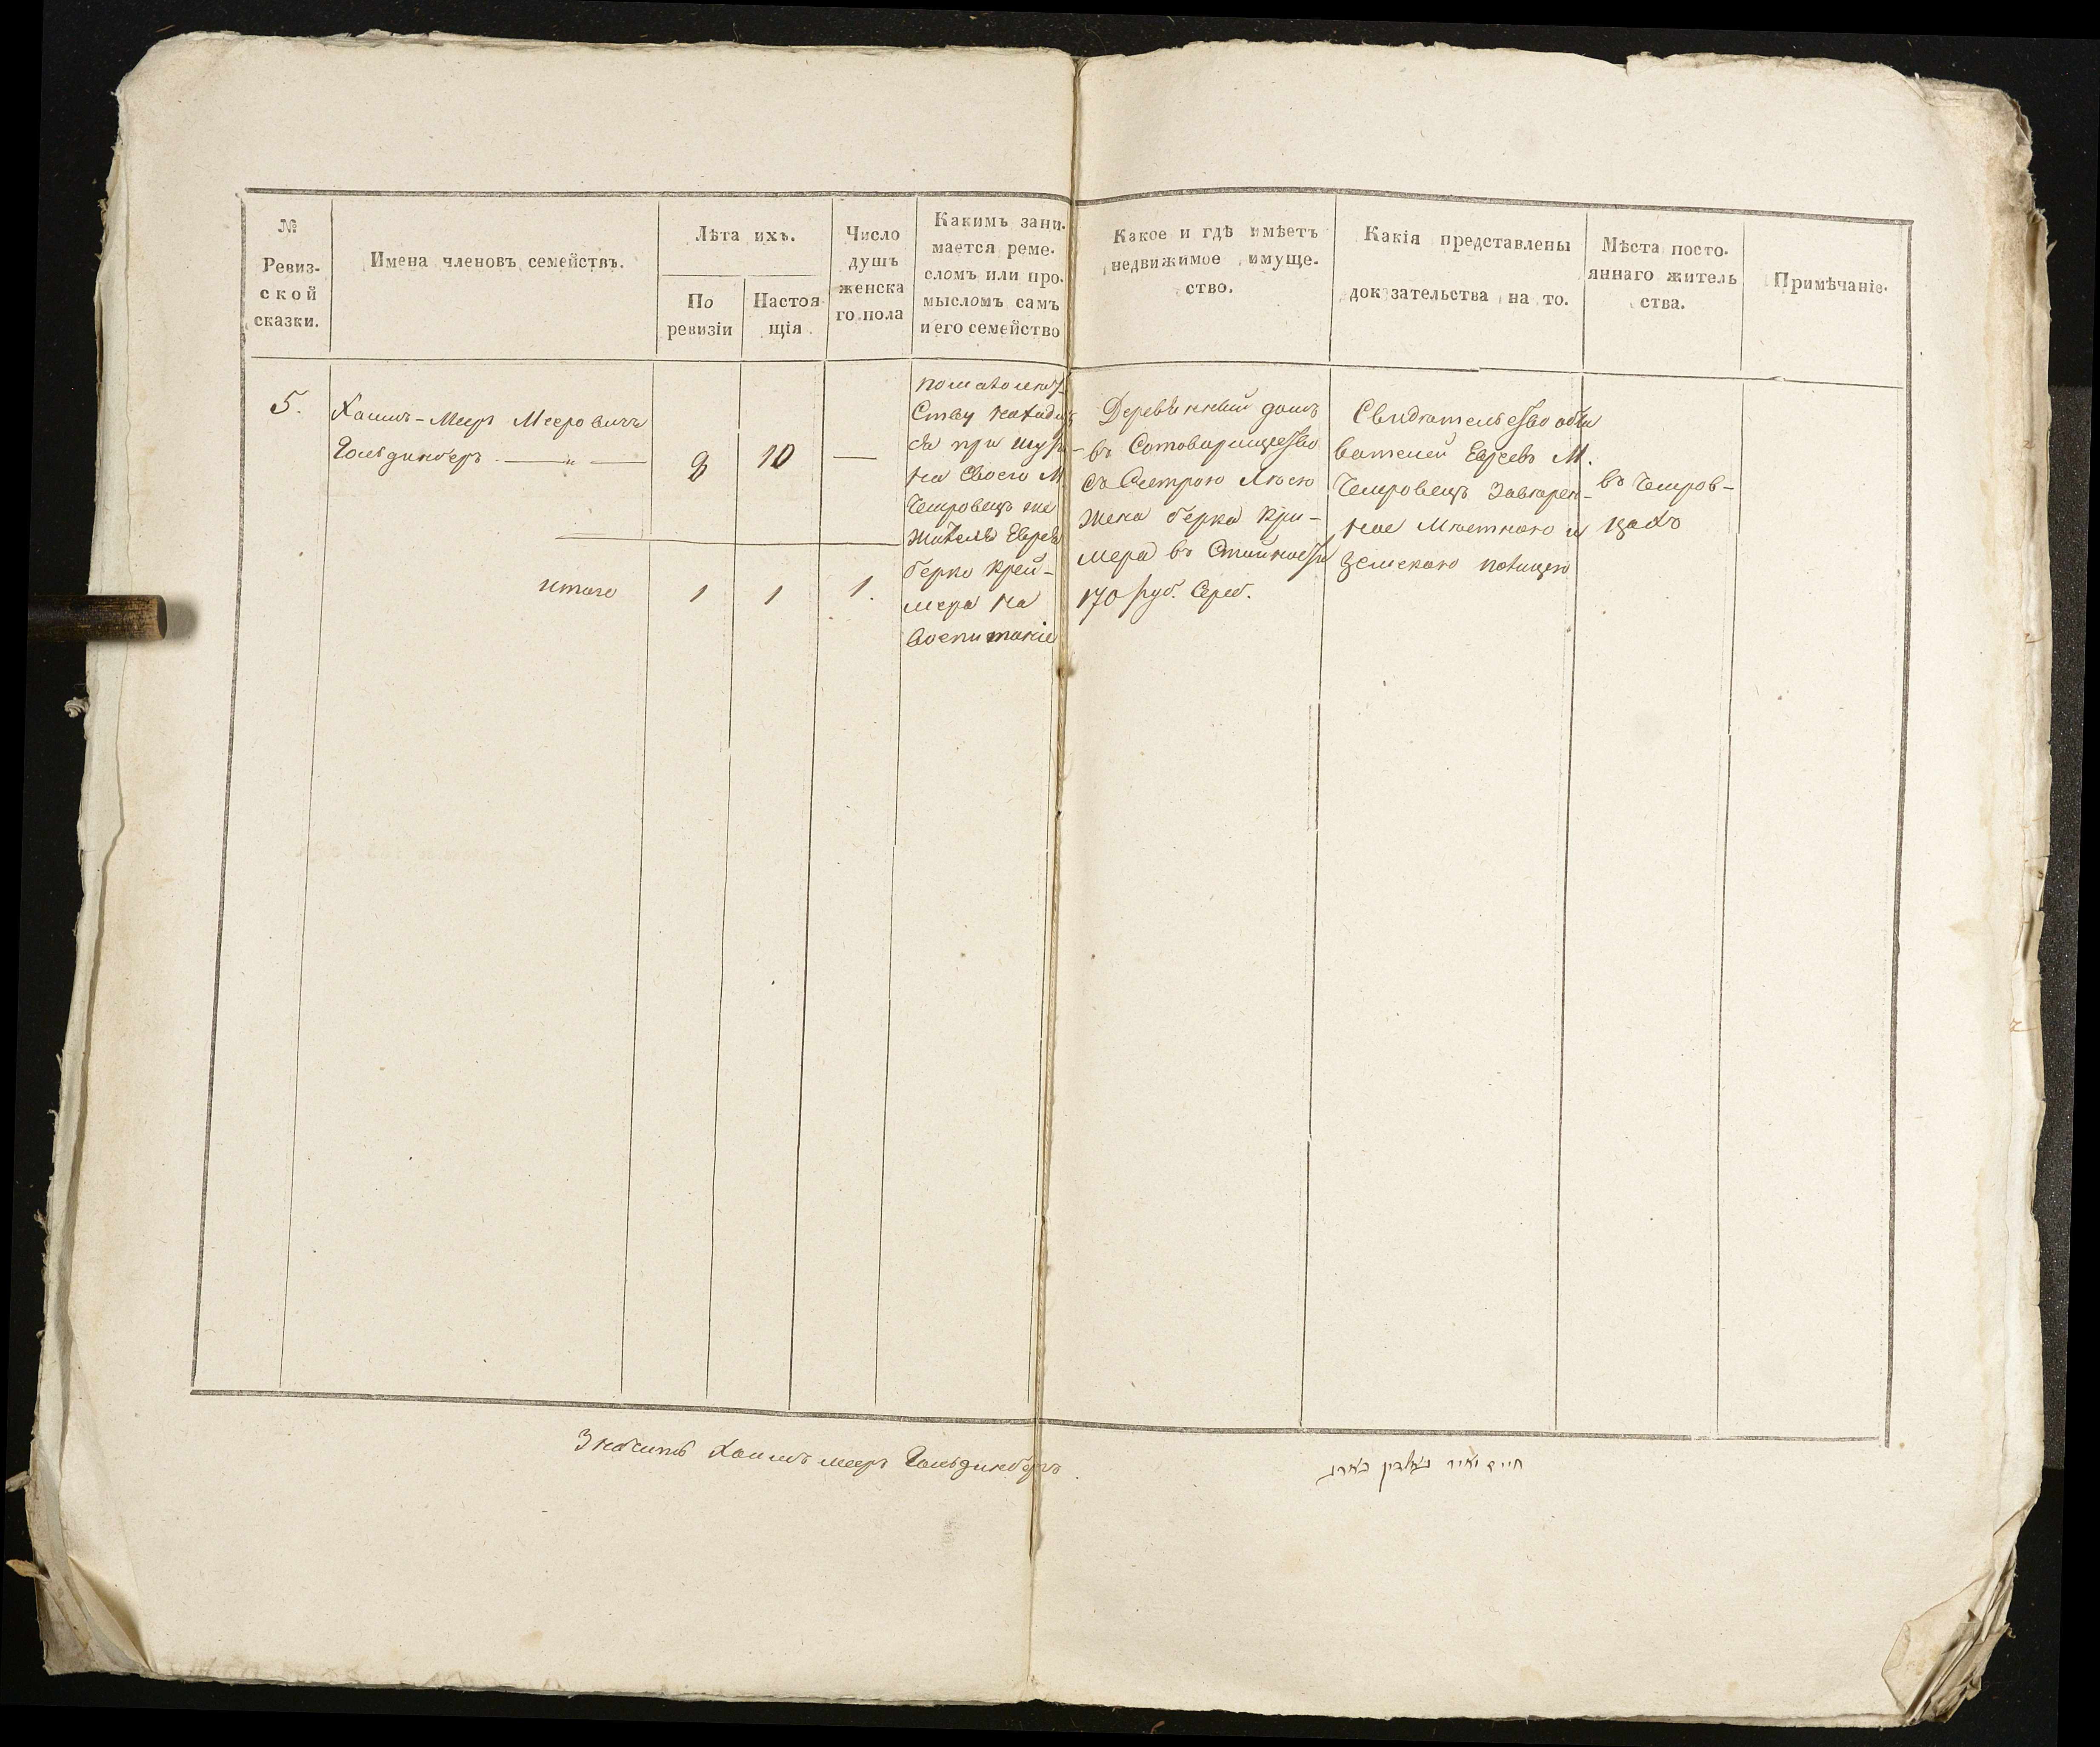 №
Ревиз-
ской
сказки.
Имена членовъ семействъ.
Лѣта ихъ.
По
ревизіи
Настоя
щія
Число
душъ
женска
го пола
Какимъ зани-
мается реме-
сломъ или про-
мысломъ самъ
и его семейство
Какое и гдѣ имѣетъ
недвижимое имуще-
ство.
Какія представлены
доказательства на то.
Мѣста посто-
яннаго житель
ства.
Примѣчаніе.
5.
Хаимъ-Меиръ Мееровичъ
Гольдинберъ
8
10
—
помалолѣт-
ству находит
ся при шури-
на своего М
Чемровецъ же
жителя Еврея
берко Крей-
мера на
воспитаніе
Деревянный домъ
въ Сотоварищество
съ Сестрою
жена берка Кри-
мера въ
170 руб. Сереб.
Свидѣтельство обы
вателей Евреевъ М.
Чемровецъ Завѣрен-
ное Мѣстною и
Земскою полицею
въ Чемров-
цахъ
итого
1
1
1.
Значитъ Хаимъ меиръ Гольдинберъ
חיים מאיר גאלדין בארג